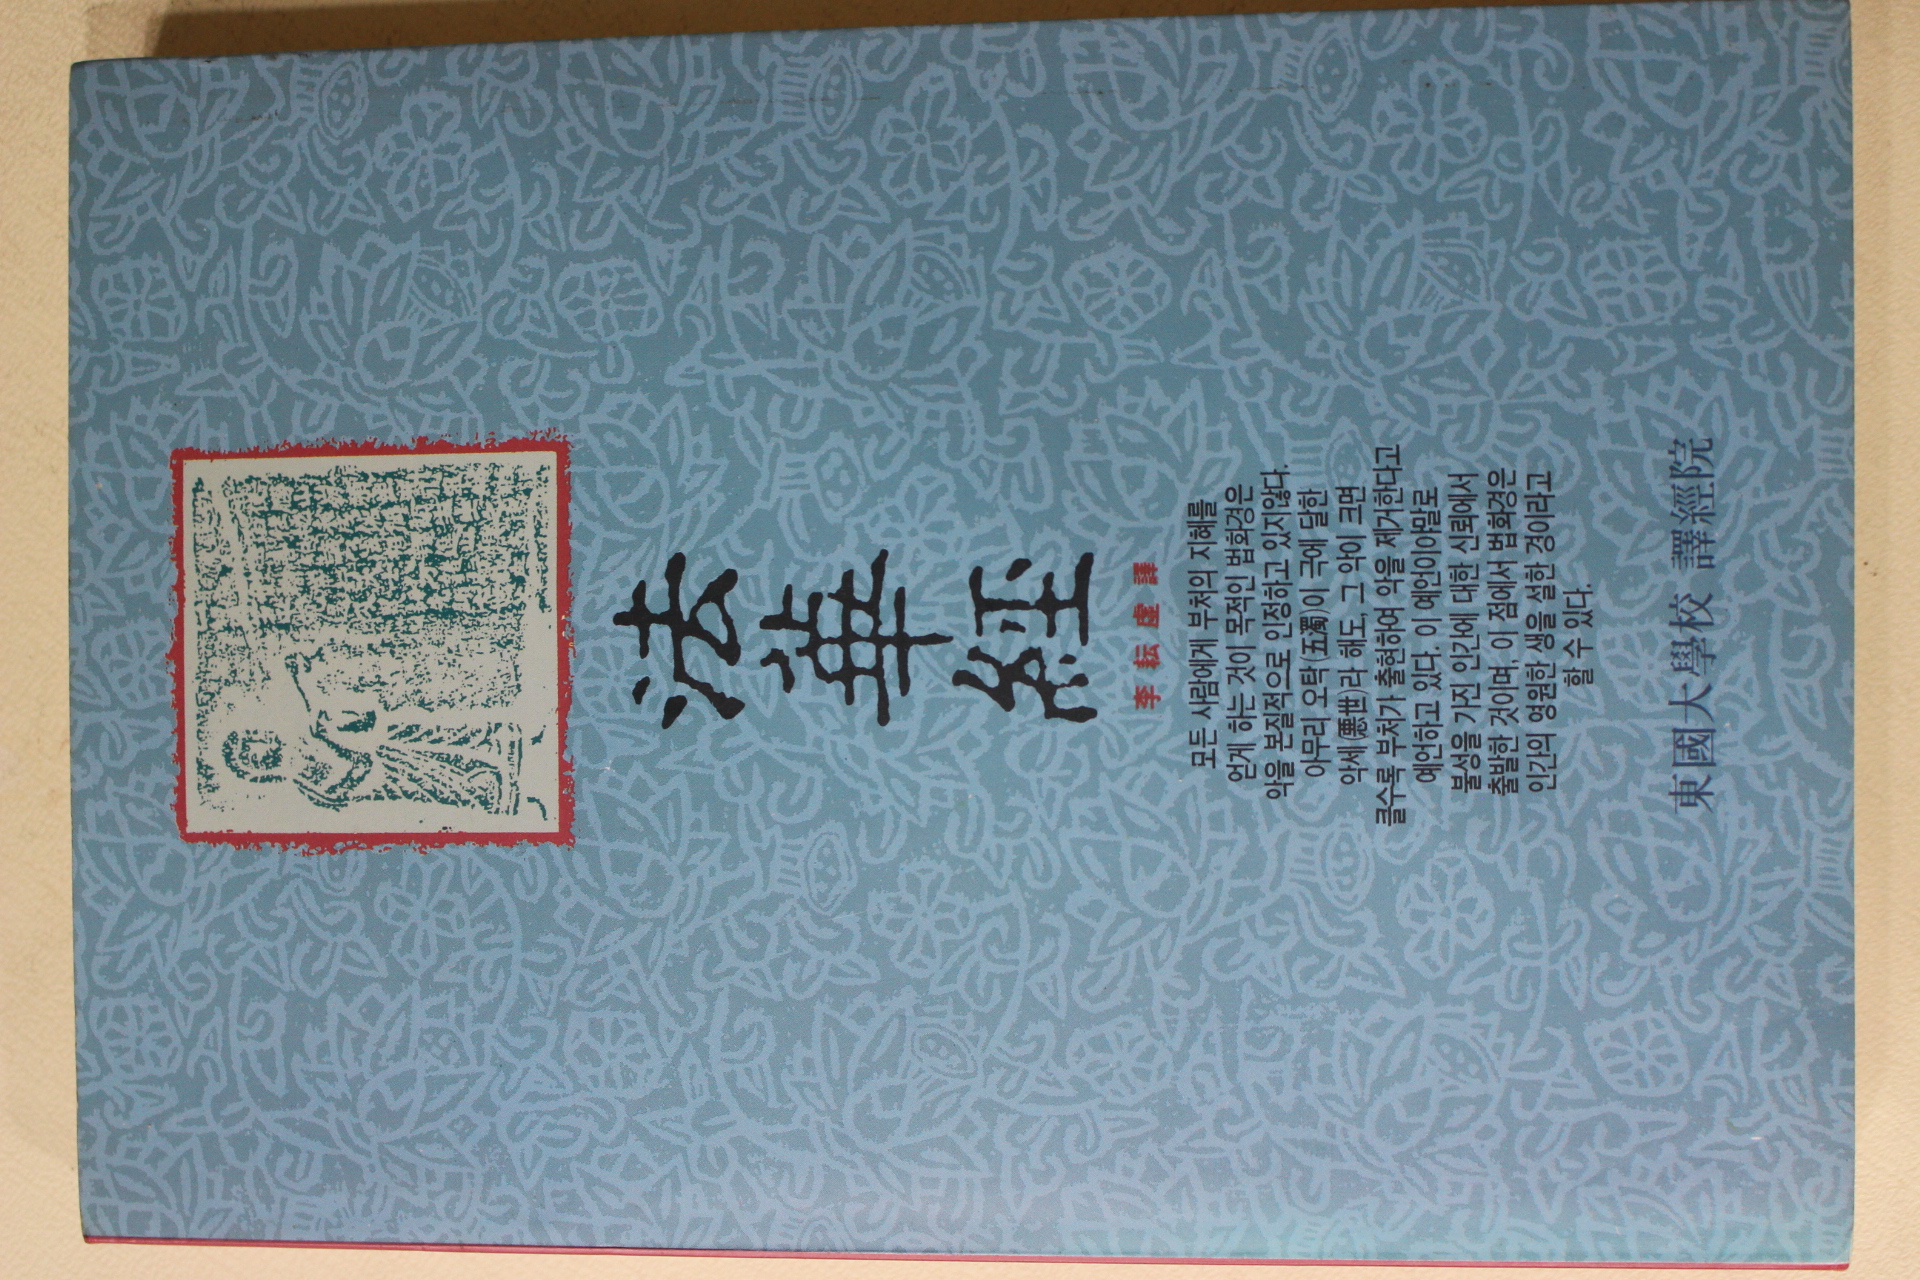 法華經
李耘虛 譯
모든 사람에게 부처의 지혜를
얻게 하는 것이 목적인 법화경은
악을 본질적으로 인정하고 있지않다.
아무리 오탁(五濁)이 극에 달한
악세(悪世)라 해도, 그 악이 크면
클수록 부처가 출현하여 악을 제거한다고
예언하고 있다. 이 예언이야말로
불성을 가진 인간에 대한 신뢰에서
출발한 것이며, 이 점에서 법화경은
인간의 영원한 생을 설한 경이라고
할 수 있다.
東國大學校 譯經院